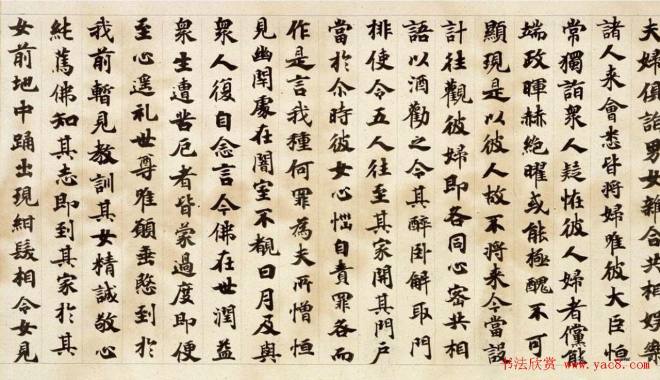 夫婦俱詣男女雜合共相娛樂
諸人來會悉皆將婦唯彼大臣恒
常獨詣衆人疑恠彼人婦者儻能
端政暉赫絶曜或能極醜不可
顯現是以彼人故不將來今當設
計往觀彼婦即各同心密共相
語以酒勸之令其醉卧解取門
排使令五人往至其家開其門户
當於尒時彼女心惱自責罪咎而
作是言我種何罪為夫所憎恒
見幽閇處在闇室不覩日月及與
衆人復自念言今佛在世潤益
衆生遭苦厄者皆蒙過度即便
至心遥礼世尊唯願垂愍到於
我前暫見教訓其女精誠敬心
純篤佛知其志即到其家於其
女前地中踊出現紺髮相令女見
书法欣赏 www.yac8.com